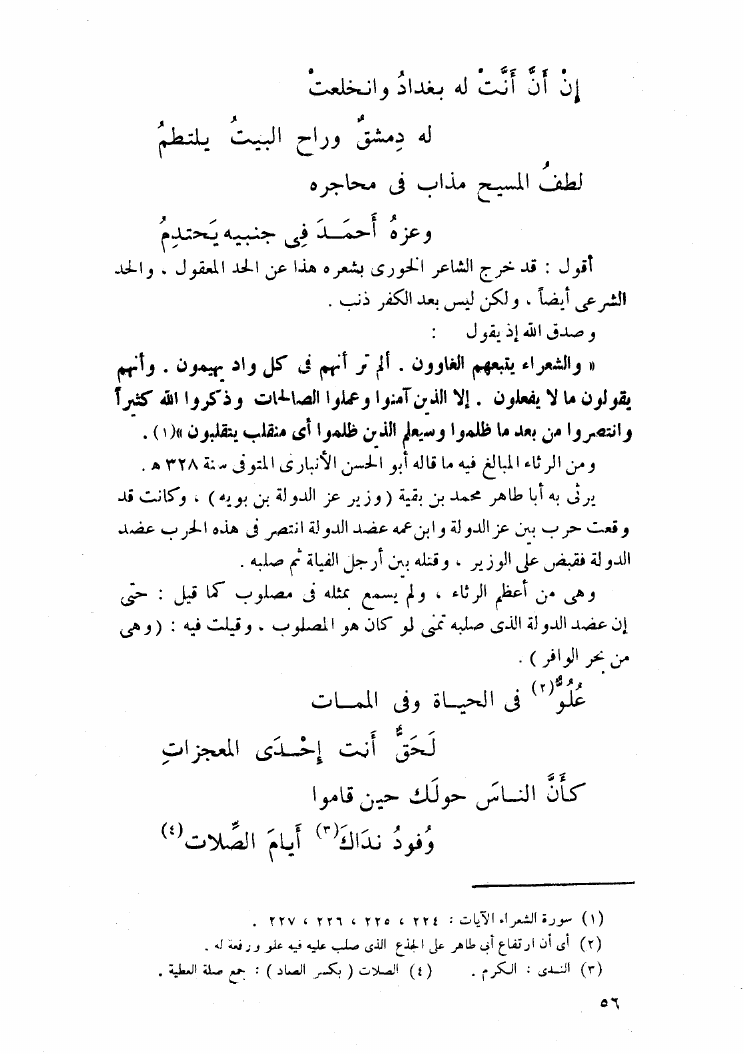 إنْ أَنَّ أَنَّتْ له بغدادُ وانخلعتْ
له دِمشقٌ وراح البيتُ يلتطمُ
لطفُ المسيح مذاب فى محاجره
وعزهُ أَحمَـدَ فِى جنبيه يَحتدِمُ
أقول : قد خرج الشاعر الخورى بشعره هذا عن الحد المعقول ، والحد
الشرعى أيضاً ، ولكن ليس بعد الكفر ذنب .
وصدق الله إذ يقول :
« والشعراء يتبعهم الغاوون . ألم تر أنهم فى كل واد يهيمون . وأنهم
يقولون ما لا يفعلون . إلا الذين آمنوا وعملوا الصالحات وذكروا الله كثيراً
وانتصروا من بعد ما ظلموا وسيعلم الذين ظلموا أى منقلب ينقلبون »(١) .
ومن الرثاء المبالغ فيه ما قاله أبو الحسن الأنبارى المتوفى سنة ٣٢٨ هـ .
يرثى به أبا طاهر محمد بن بقية ( وزير عز الدولة بن بويه ) ، وكانت قد
وقعت حرب بين عز الدولة وابن عمه عضد الدولة انتصر فى هذه الحرب عضد
الدولة فقبض على الوزير ، وقتله بين أرجل الفيلة ثم صلبه .
وهى من أعظم الرثاء ، ولم يسمع بمثله فى مصلوب كما قيل : حتى
إن عضد الدولة الذى صلبه تمنى لو كان هو المصلوب ، وقيلت فيه : ( وهى
من بحر الوافر ) .
عُلُوٌّ(٢) فى الحيـاة وفى الممـات
لَحَقٌّ أَنت إِحْـدَى المعجزاتِ
كأَنَّ النـاسَ حولَك حين قاموا
وُفودُ نَدَاكَ(٣) أَيامَ الصِّلات(٤)
(١) سورة الشعراء الآيات : ٢٢٤ ، ٢٢٥ ، ٢٢٦ ، ٢٢٧ .
(٢) أى أن ارتفاع أبى طاهر على الجذع الذى صلب عليه فيه علو ورفعة له .
(٣) النـدى : الكرم . (٤) الصلات ( بكسر الصاد ) : جمع صلة العطية .
٥٦